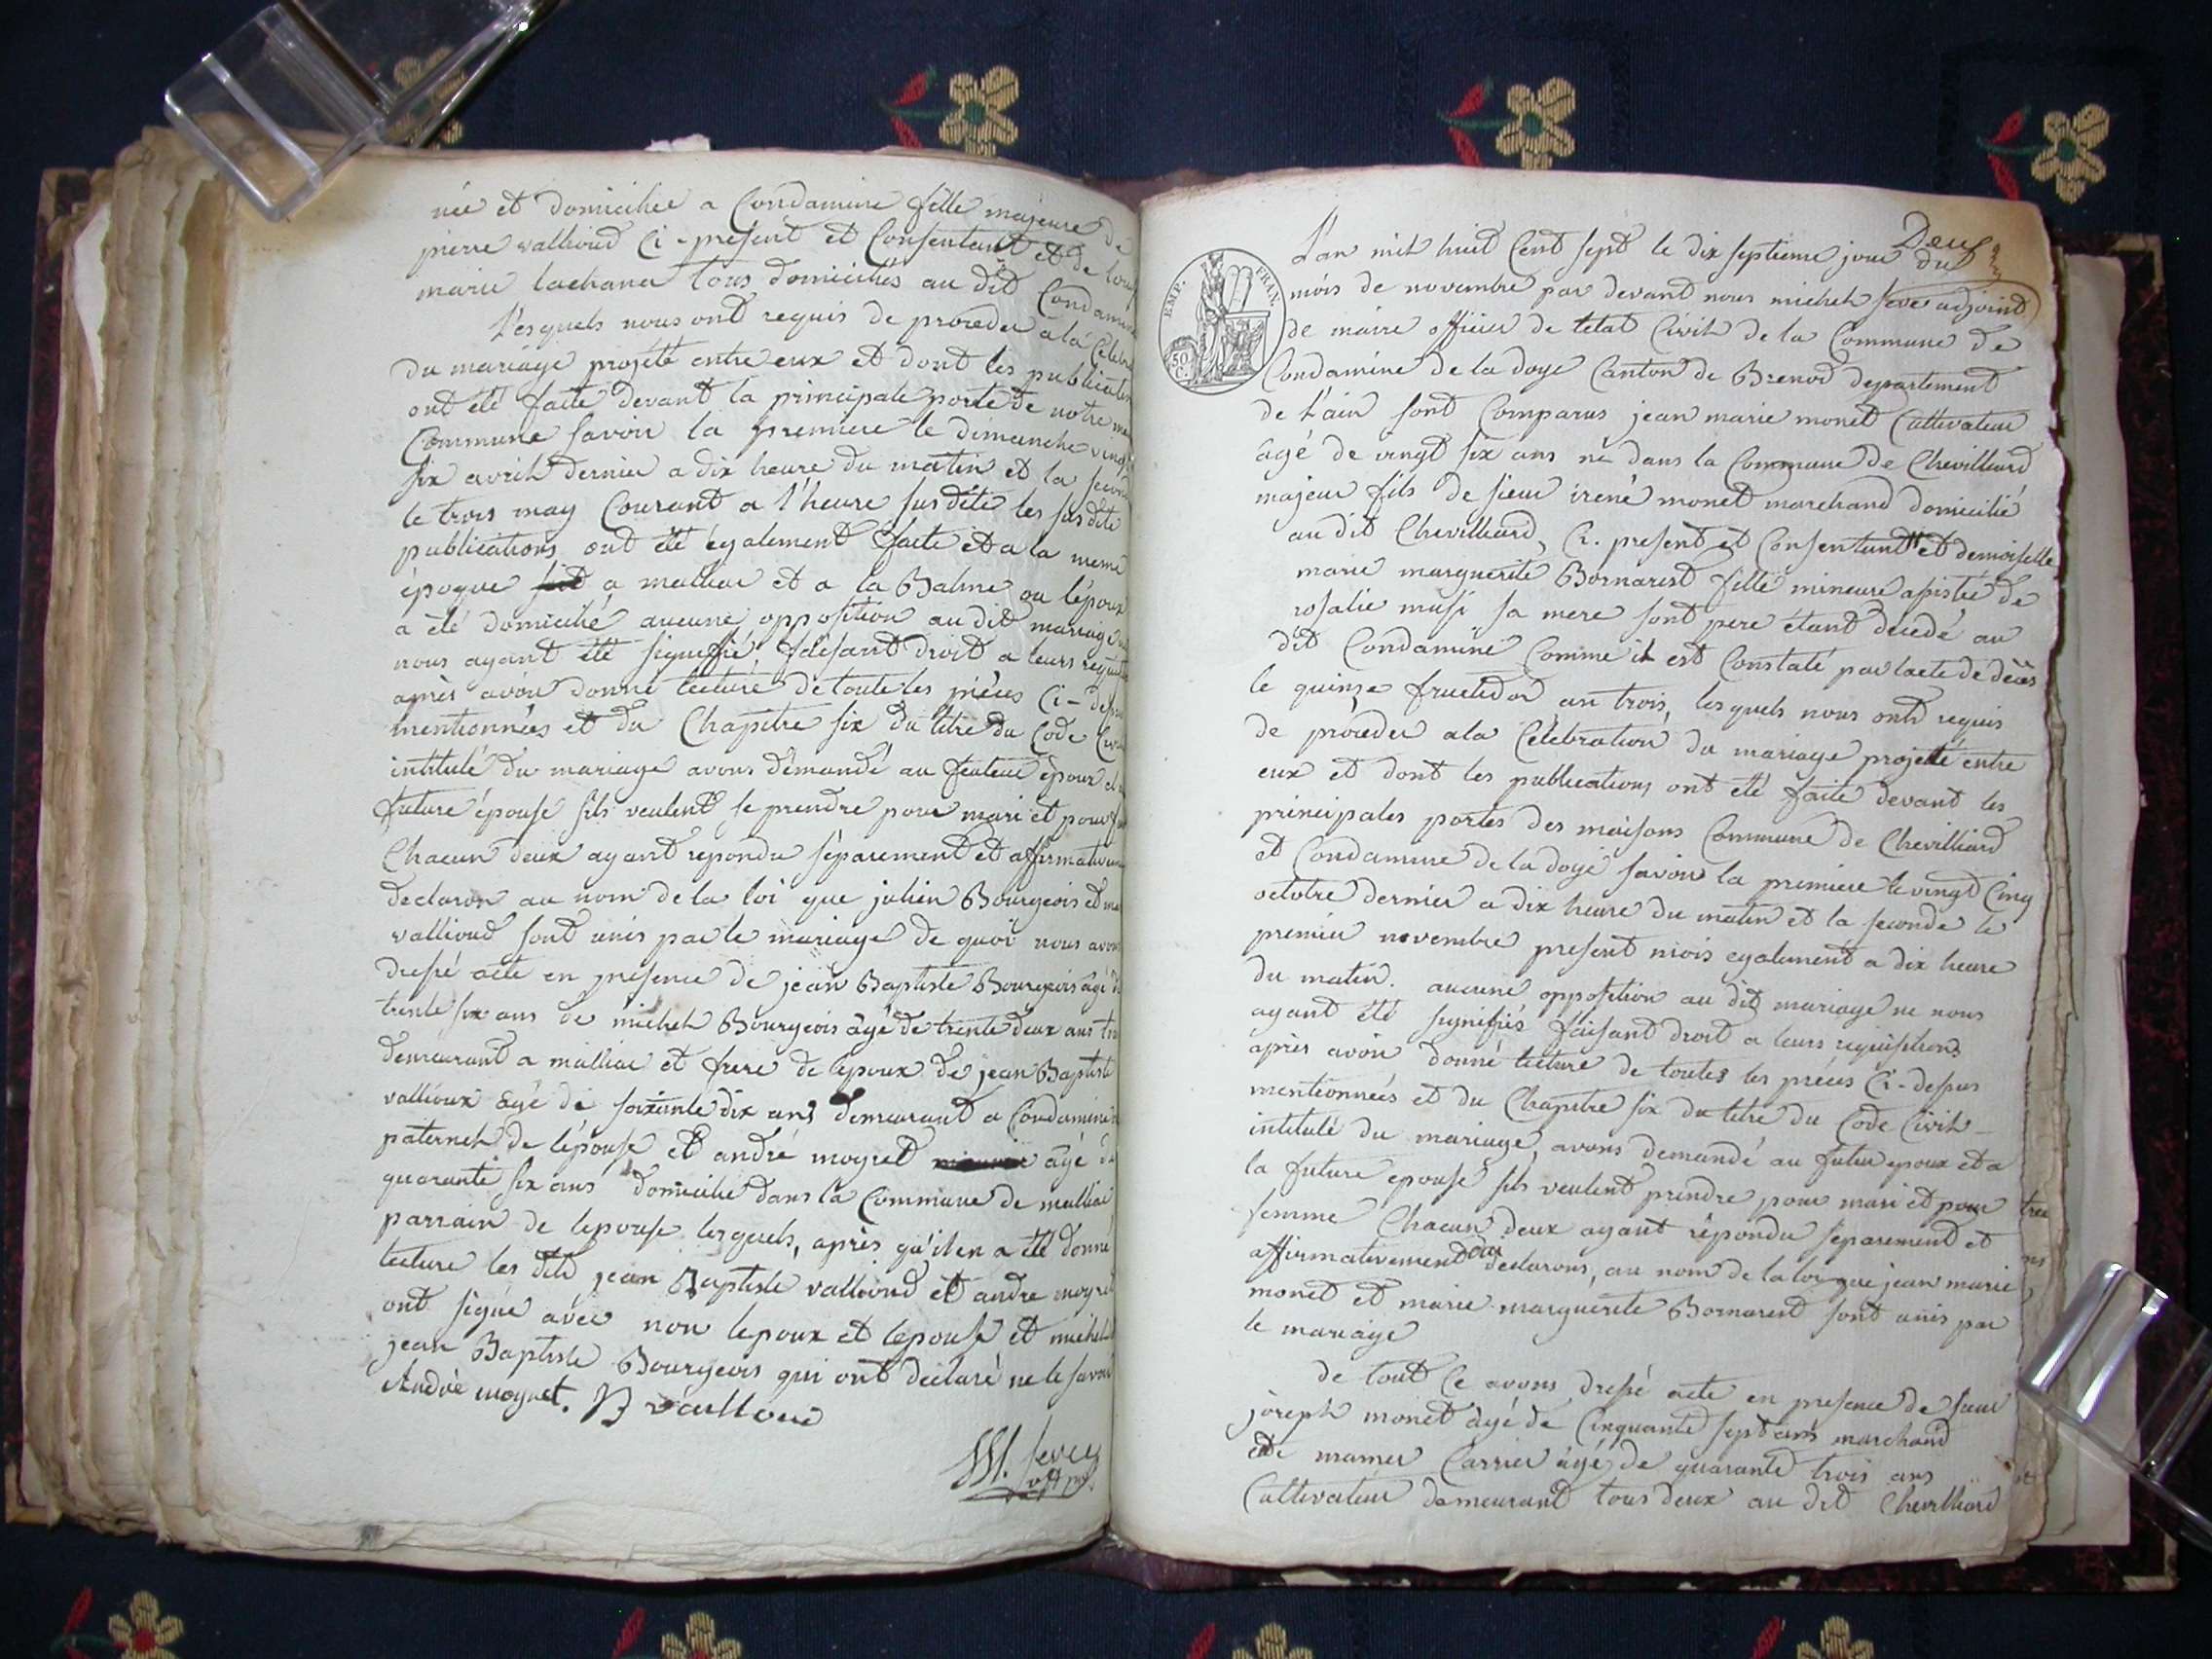 née et domicilié a Condamine fille majeure de
pierre vallioud Ci-present et Consentent et de
marie tous domiciliés au dit
Lesquels nous ont requis de proceder a la
du mariage projété entre eux et dont les
ont été faite devant la principale porte de notre
Commune savoir la premiere le dimenche
six avril dernier a dix heure du matin et la
le trois may Courant a l'heure sus dite les sus dite
publications ont été également faite et a la meme
époque a malliac et a la Balme ou l'epoux
a été domicilié aucune opposition au dit mariage
nous ayant été signiffié faisant droit a leurs
après avoir donné lecture de toute les pièces Ci-
mentionnées et du Chapitre six du titre du Code
intitulé du mariage avons démandé au feuteur époux
future épouse sils veulent se prendre pour mari et pour
Chacun deux ayant repondu séparement et
declaron au nom de la loi que julien Bourgeois et
vallioud sont unis par le mariage de quoi nous
dressé acte en présence de jean Baptiste Bourgeois âgé
trente six ans de michel Bourgeois âgé de trente deux ans
demeurant a malliac et frere de lepoux de jean Baptiste
vallioux âgé de soixante dix ans demeurant a Condamine
paternel de l'épouse et andré moyret âgé
quarante six ans domicilié dans la Commune de malliac
parrain de lepouse lesquels, après qu'il en a été donné
lecture les dits jean Baptiste vallioud et andre
ont signé avec nou lepoux et lepouse et
jean Baptiste Bourgeois qui ont déclaré ne le
Andrè moyret. B vallioud
M. seve
Deux
L'an mil huit Cent sept le dix septieme jour du
mois de novembre par devant nous michel seve adjoint
de maire officier de letat Civil de la Commune de
Condamine de la doye Canton de Brenod departement
de l'ain sont Comparus jean marie monet Cultivateur
âgé de vingt six ans né dans la Commune de Chevilliard
majeur fils de sieur irené monet marchand domicilié
au dit Chevilliard, Ci. present et Consentent et demoiselle
marie marguerite Bornarest fille mineure assistée de
rosalie sa mere sont pere étant décédé au
dit Condamine Comme il est Constaté par lacte de décès
le quinze fructidor an trois, lesquels nous ont requis
de procèder a la Célébration du mariage projetté entre
eux et dont les publications ont été faite devant les
principales portes des maisons Commune de Chevilliard
et Condamine de la doye savoir la premiere le vingt Cinq
octobre dernier a dix heure du matin et la seconde le
premier novembre present mois egalement a dix heure
du matin. aucune opposition au dit mariage ne nous
ayant été signifiés faisant droit a leurs requisitions
après avoir donné lecture de toutes les pièces Ci-dessus
mentionnées et du Chapitre six du titre du Code Civil
intitulé du mariage, avons demandé au futur epoux et a
la future epouse sils veulent prendre pour mari et pour
femme Chacun deux ayant répondu séparement et
affirmativement declarons, au nom de la loi que jean marie
monet et marie marguerite Bornarest sont unis par
le mariage
de tout Ce avons dressé acte en presence de sieur
joseph monet âgé de Cinquante sept ans marchand
et de mamer Carrier âgé de quarante trois ans
Cultivateur demeurant tous deux au dit Chevilliard
EMP. FRAN.
50 C.